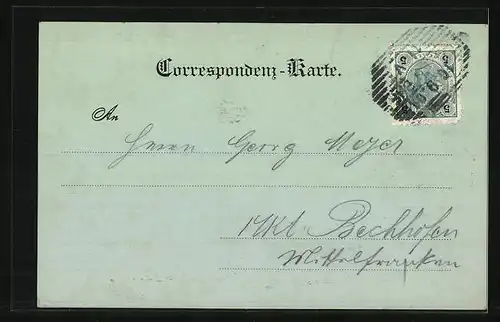 Correspondenz-Karte.
5 5
An
Herrn Georg Meyer
Mkt Bechhofen
Mittelfranken
5 5